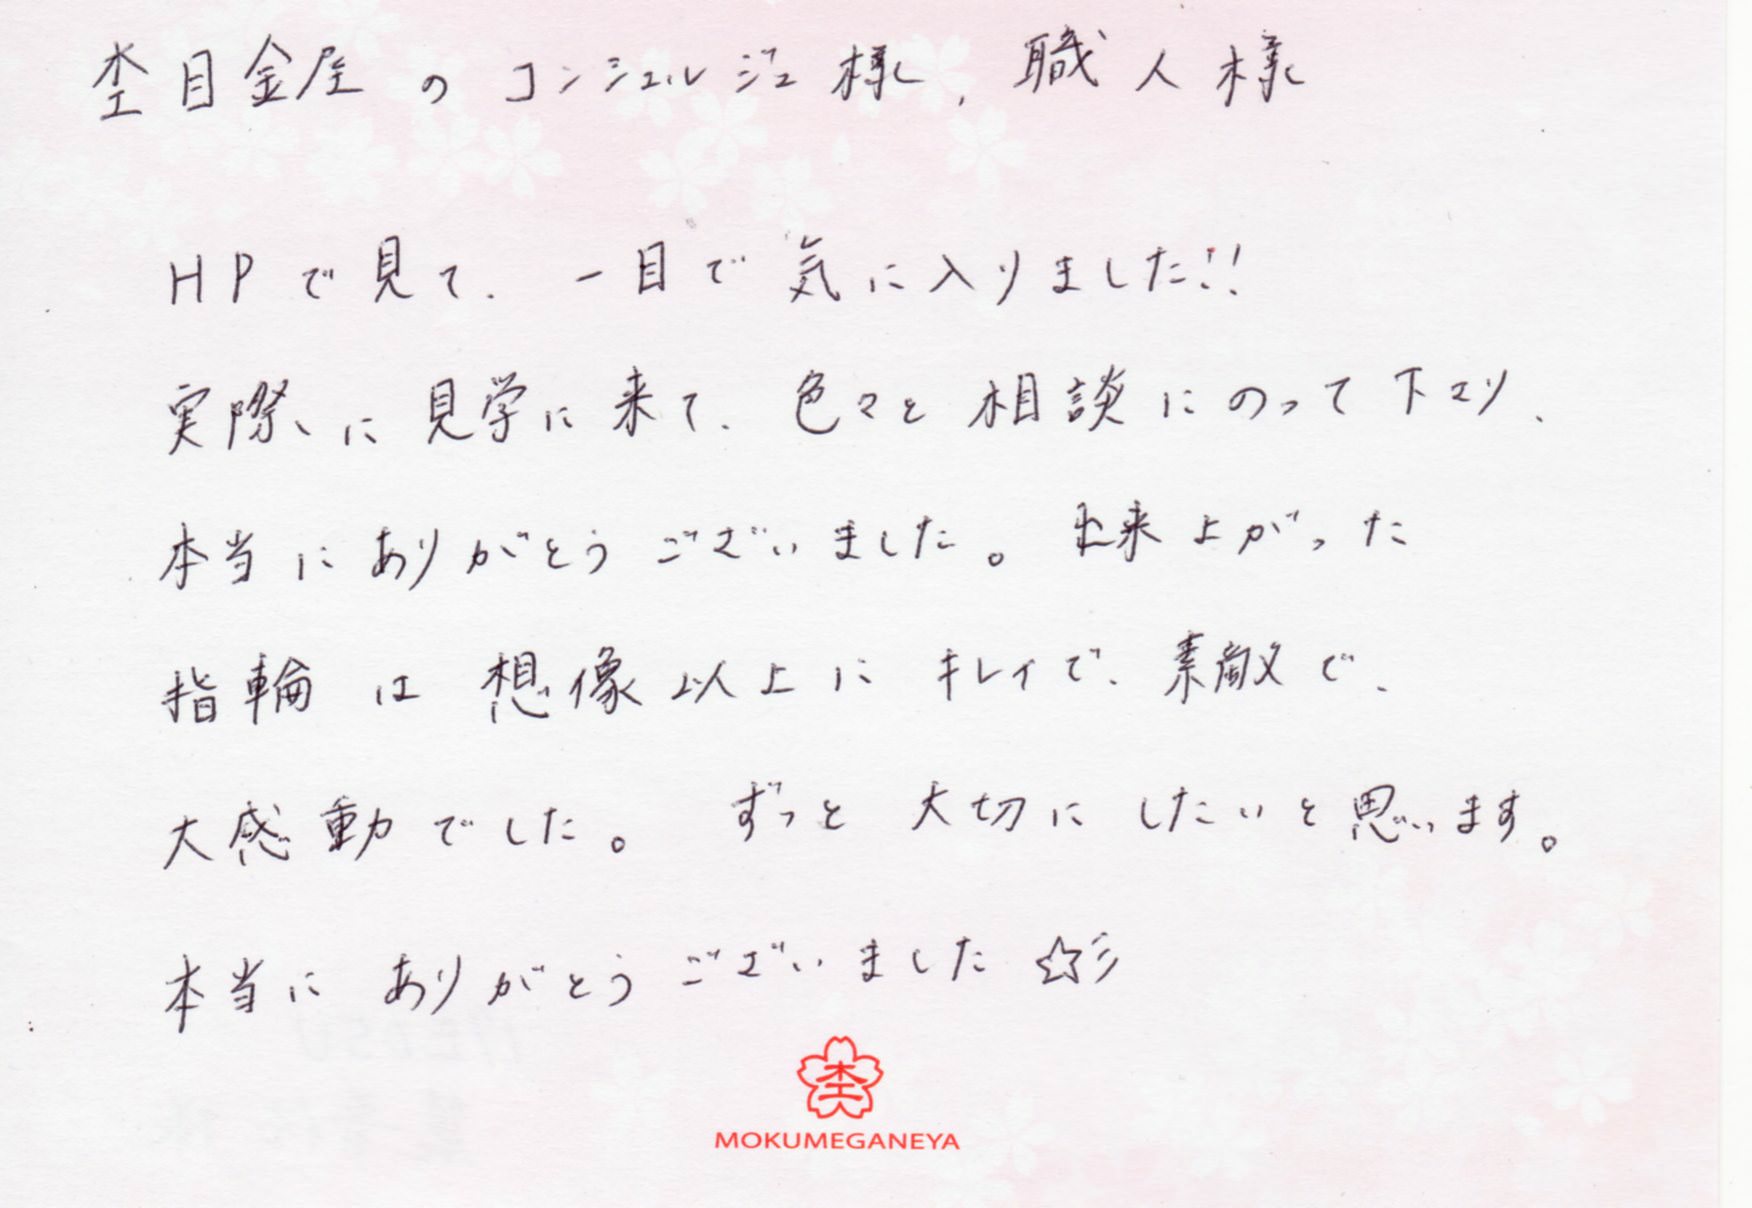 杢目金屋のコンシェルジュ様、職人様
HPで見て、一目で気に入りました!!
実際に見学に来て、色々と相談にのって下さり、
本当にありがとうございました。出来上がった
指輪は想像以上にキレイで、素敵で、
大感動でした。ずっと大切にしたいと思います。
本当にありがとうございました☆彡
杢
MOKUMEGANEYA